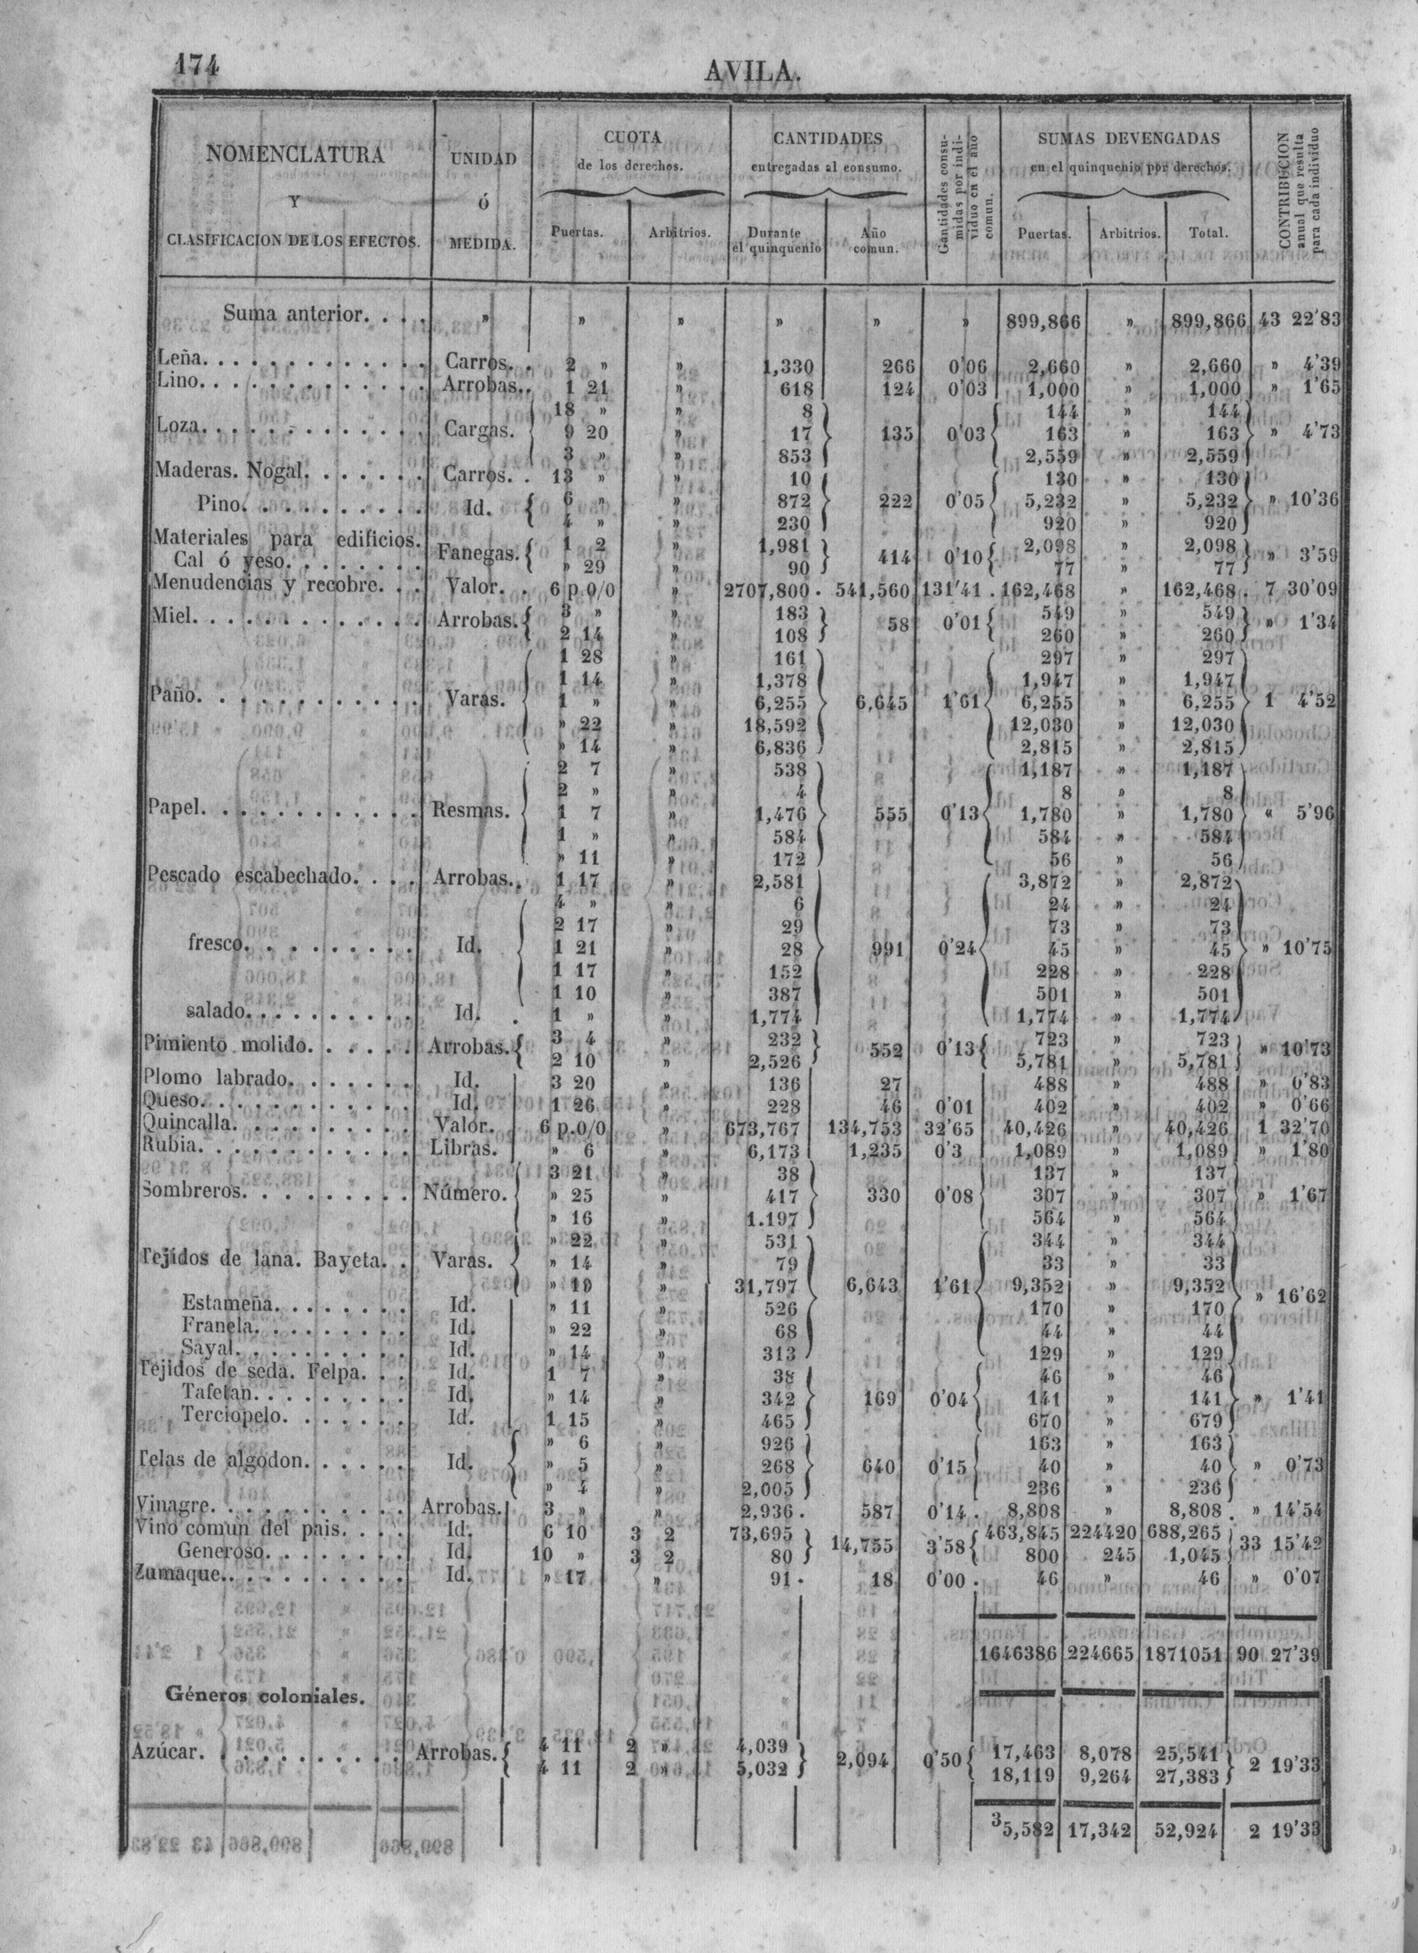 174
AVILA.
NOMENCLATURA Y CLASIFICACION DE LOS EFECTOS.
UNIDAD Ó MEDIDA.
CUOTA de los derechos.
Puertas. Arbitrios.
CANTIDADES entregadas al consumo.
Durante el quinquenio Año comun.
Cantidades consumidas por individuo en el año comun.
SUMAS DEVENGADAS en el quinquenio por derechos.
Puertas. Arbitrios. Total.
CONTRIBUCION anual que resulta para cada individuo
Suma anterior. . . . » » » » » » 899,866 » 899,866 43 22'83
Leña. . . . . . . . . . . . . Carros. . 2 » » 1,330 266 0'06 2,660 » 2,660 » 4'39
Lino. . . . . . . . . . . . . Arrobas. . 1 21 » 618 124 0'03 1,000 » 1,000 » 1'65
18 » » 8 144 » 144
Loza. . . . . . . . . . . . . Cargas. 9 20 » 17 135 0'03 163 » 163 » 4'73
3 » » 853 2,559 » 2,559
Maderas. Nogal. . . . . . . Carros. . 13 » » 10 130 » 130
Pino. . . . . . . . . . Id. 6 » » 872 222 0'05 5,232 » 5,232 » 10'36
4 » » 230 920 » 920
Materiales para edificios. 1 2 » 1,981 2,098 » 2,098
Cal ó yeso. . . . . . . . Fanegas. » 29 » 90 414 0'10 77 » 77 » 3'59
Menudencias y recobre. . . Valor. . 6 p.0/0 » 2707,800 . 541,560 131'41 . 162,468 » 162,468 . 7 30'09
Miel. . . . . . . . . . . . . Arrobas. 3 » » 183 58 0'01 549 » 549 » 1'34
2 14 » 108 260 » 260
1 28 » 161 297 » 297
1 14 » 1,378 1,947 » 1,947
Paño. . . . . . . . . . . . Varas. 1 » » 6,255 6,645 1'61 6,255 » 6,255 1 4'52
» 22 » 18,592 12,030 » 12,030
» 14 » 6,836 2,815 » 2,815
2 7 » 538 1,187 » 1,187
2 » » 4 8 » 8
Papel. . . . . . . . . . . . Resmas. 1 7 » 1,476 555 0'13 1,780 » 1,780 « 5'96
1 » » 584 584 » 584
» 11 » 172 56 » 56
Pescado escabechado. . . . Arrobas. . 1 17 » 2,581 3,872 » 2,872
4 » » 6 24 » 24
2 17 » 29 73 » 73
fresco. . . . . . . . . Id. 1 21 » 28 991 0'24 45 » 45 » 10'75
1 17 » 152 228 » 228
1 10 » 387 501 » 501
salado. . . . . . . . . Id. . 1 » » 1,774 1,774 » 1,774
Pimiento molido. . . . . . Arrobas. 3 4 » 232 552 0'13 723 » 723 » 10'73
2 10 » 2,526 5,781 » 5,781
Plomo labrado. . . . . . . Id. 3 20 » 136 27 488 » 488 » 0'83
Queso. . . . . . . . . . . . Id. 1 26 » 228 46 0'01 402 » 402 » 0'66
Quincalla. . . . . . . . . . Valor. 6 p.0/0 » 673,767 134,753 32'65 40,426 » 40,426 1 32'70
Rubia. . . . . . . . . . . . Libras. » 6 » 6,173 1,235 0'3 1,089 » 1,089 » 1'80
3 21 38 137 » 137
Sombreros. . . . . . . . . Número. » 25 » 417 330 0'08 307 » 307 » 1'67
» 16 » 1.197 564 » 564
» 22 » 531 344 » 344
Tejidos de lana. Bayeta. . Varas. » 14 » 79 33 » 33
» 19 » 31,797 6,643 1'61 9,352 » 9,352 » 16'62
Estameña. . . . . . . Id. » 11 » 526 170 » 170
Franela. . . . . . . . Id. » 22 » 68 44 » 44
Sayal. . . . . . . . . Id. » 14 » 313 129 » 129
Tejidos de seda. Felpa. . . Id. 1 7 » 38 46 » 46
Tafetan. . . . . . . . Id. » 14 » 342 169 0'04 141 » 141 » 1'41
Terciopelo. . . . . . . Id. 1 15 » 465 670 » 679
» 6 » 926 163 » 163
Telas de algodon. . . . . . Id. » 5 » 268 640 0'15 40 » 40 » 0'73
» 4 » 2,005 236 » 236
Vinagre. . . . . . . . . . . Arrobas. 3 » » 2,936 . 587 0'14 . 8,808 » 8,808 . » 14'54
Vino comun del pais. . . . Id. 6 10 3 2 73,695 14,755 3'58 463,845 224420 688,265 33 15'42
Generoso. . . . . . . Id. 10 » 3 2 80 800 245 1,045
Zumaque. . . . . . . . . . Id. » 17 » 91 . 18 0'00 . 46 » 46 » 0'07
1646386 224665 1871051 90 27'39
Géneros coloniales.
Azúcar. . . . . . . . . . . Arrobas. 4 11 2 » 4,039 2,094 0'50 17,463 8,078 25,541 2 19'33
4 11 2 » 5,032 18,119 9,264 27,383
35,582 17,342 52,924 2 19'33